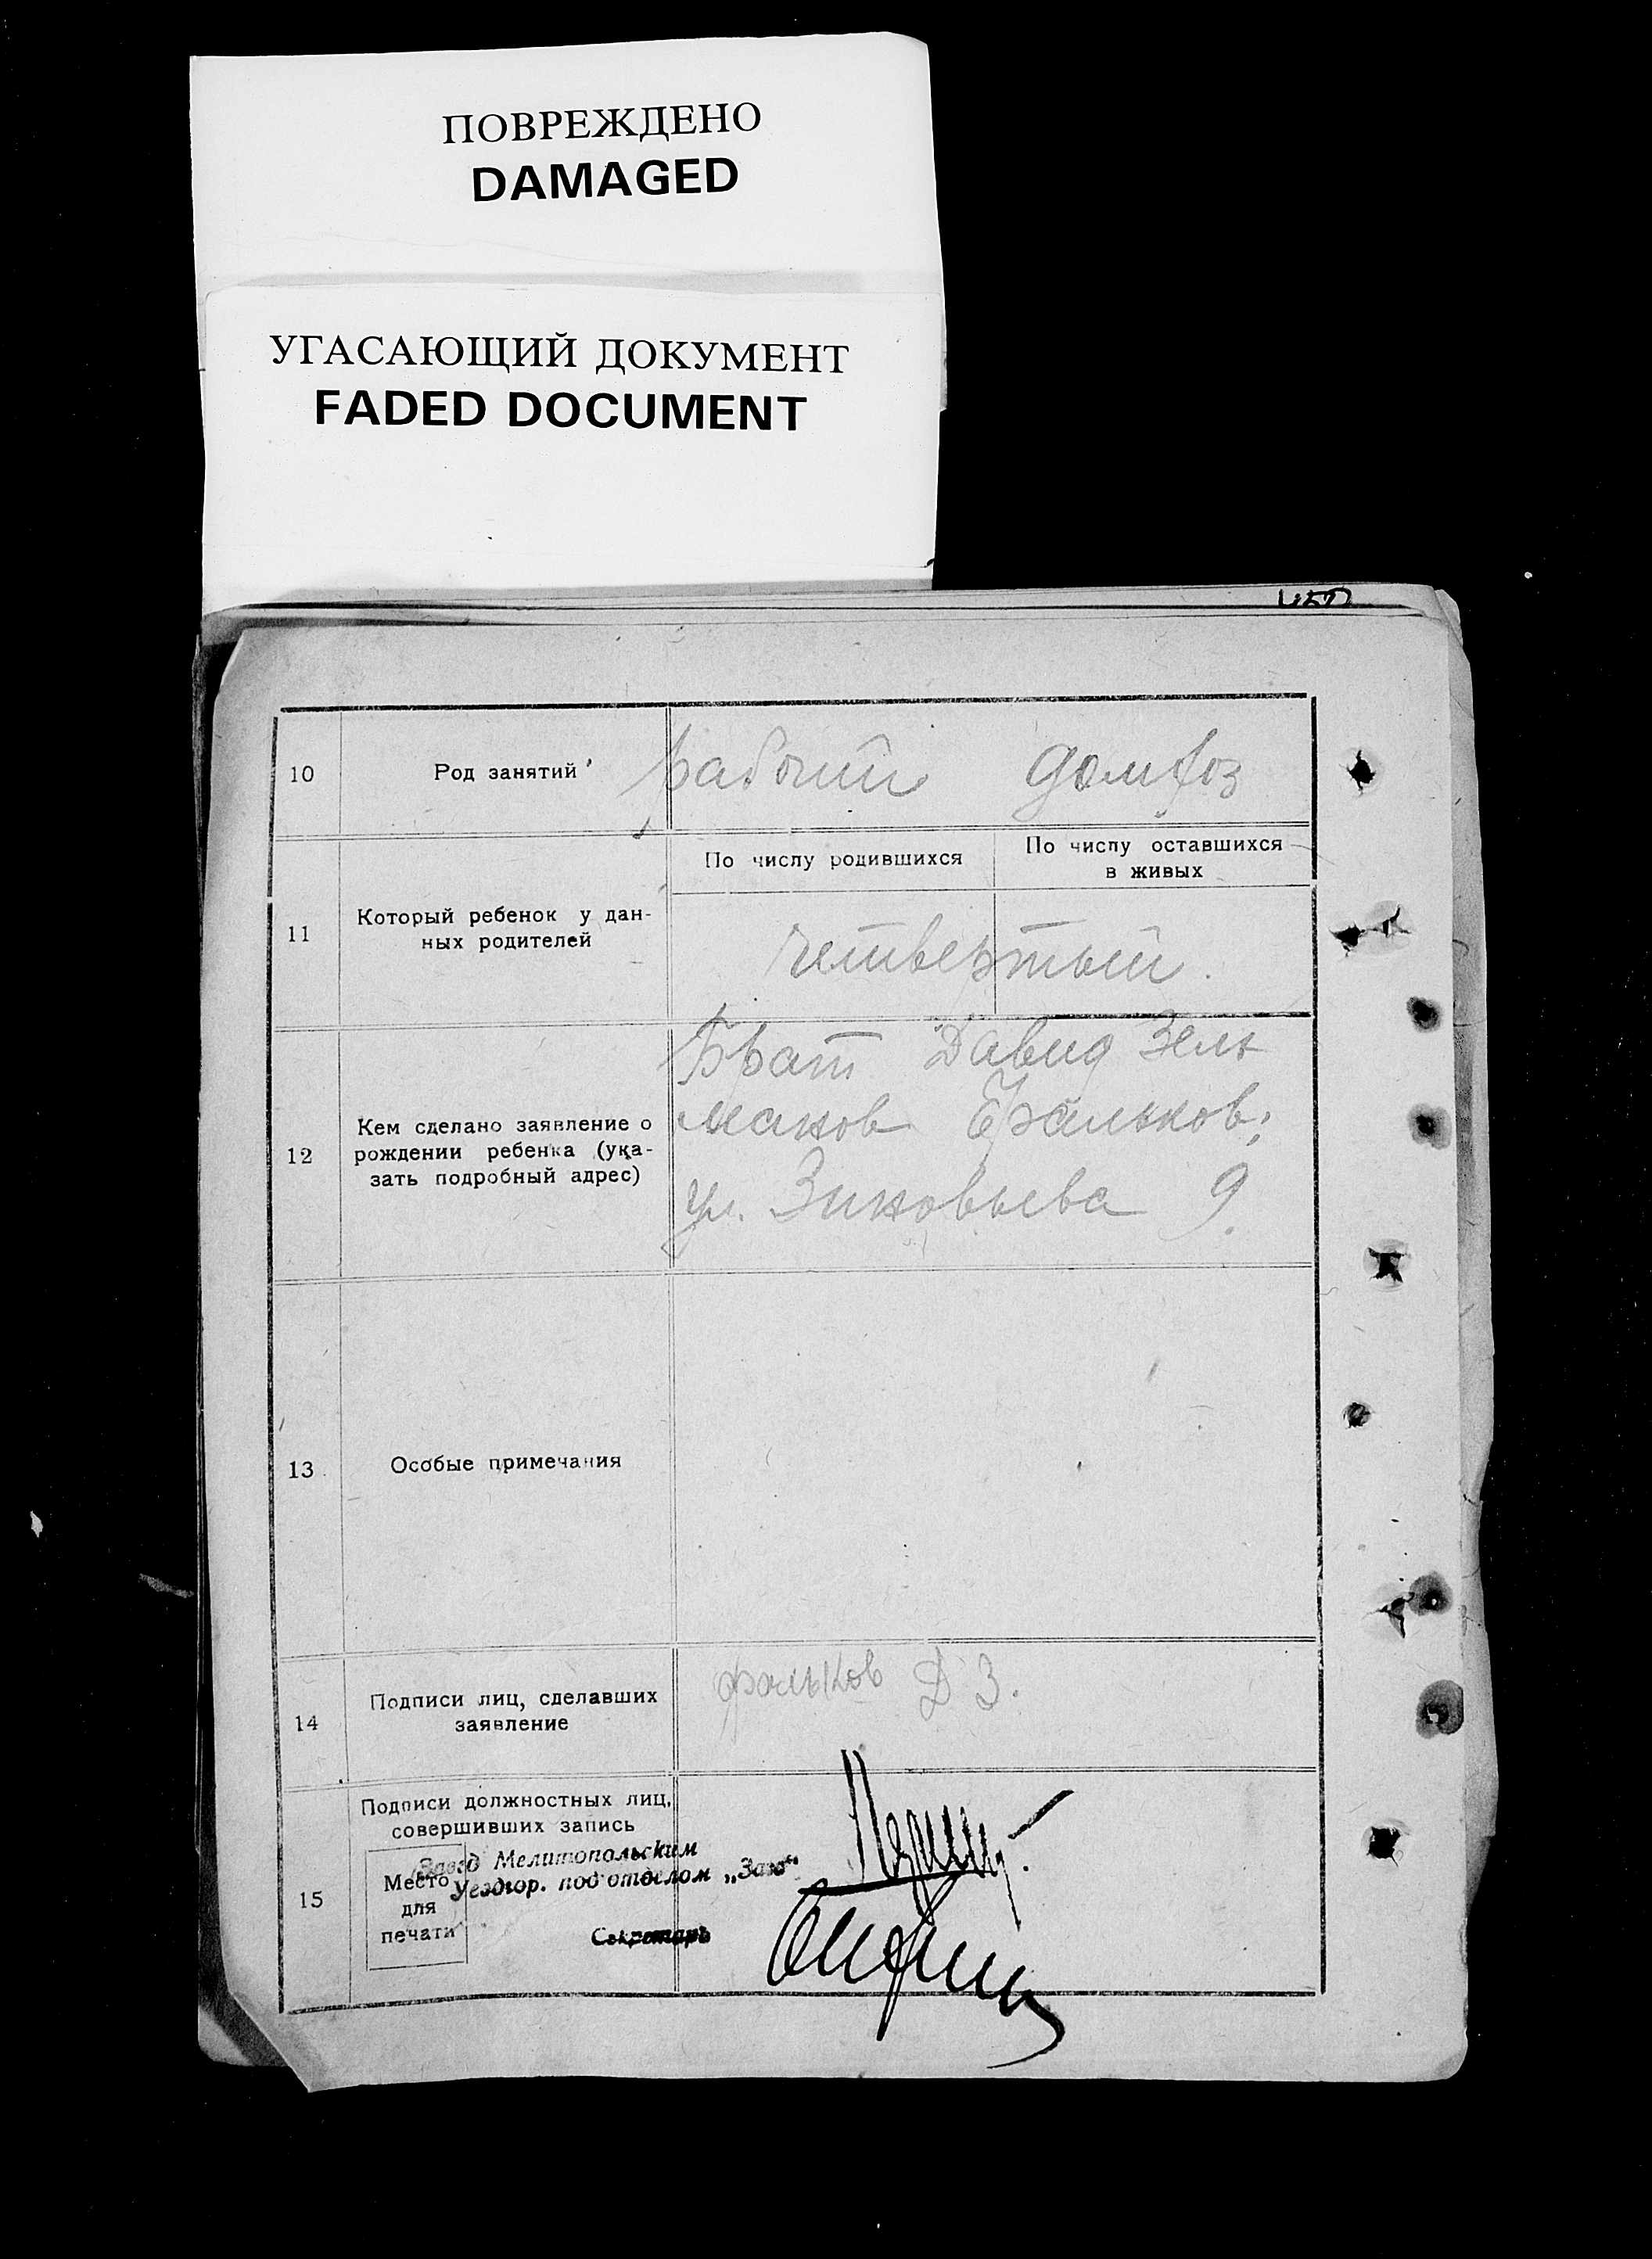 ПОВРЕЖДЕНО
DAMAGED
УГАСАЮЩИЙ ДОКУМЕНТ
FADED DOCUMENT
10 Род занятий рабочий домхоз
По числу родившихся По числу оставшихся
в живых
11 Который ребенок у дан-
ных родителей
четвертый.
12 Кем сделано заявление о
рождении ребенка (ука-
зать подробный адрес)
Брат Давид Зель
манов Фальков;
ул. Зиновьева 9.
13 Особые примечания
14 Подписи лиц, сделавших
заявление
Фальков Д З.
15 Подписи должностных лиц,
совершивших запись
Место
для
печати
Завед Мелитопольским
Уездюр. подотделом „Загс“
Секретарь